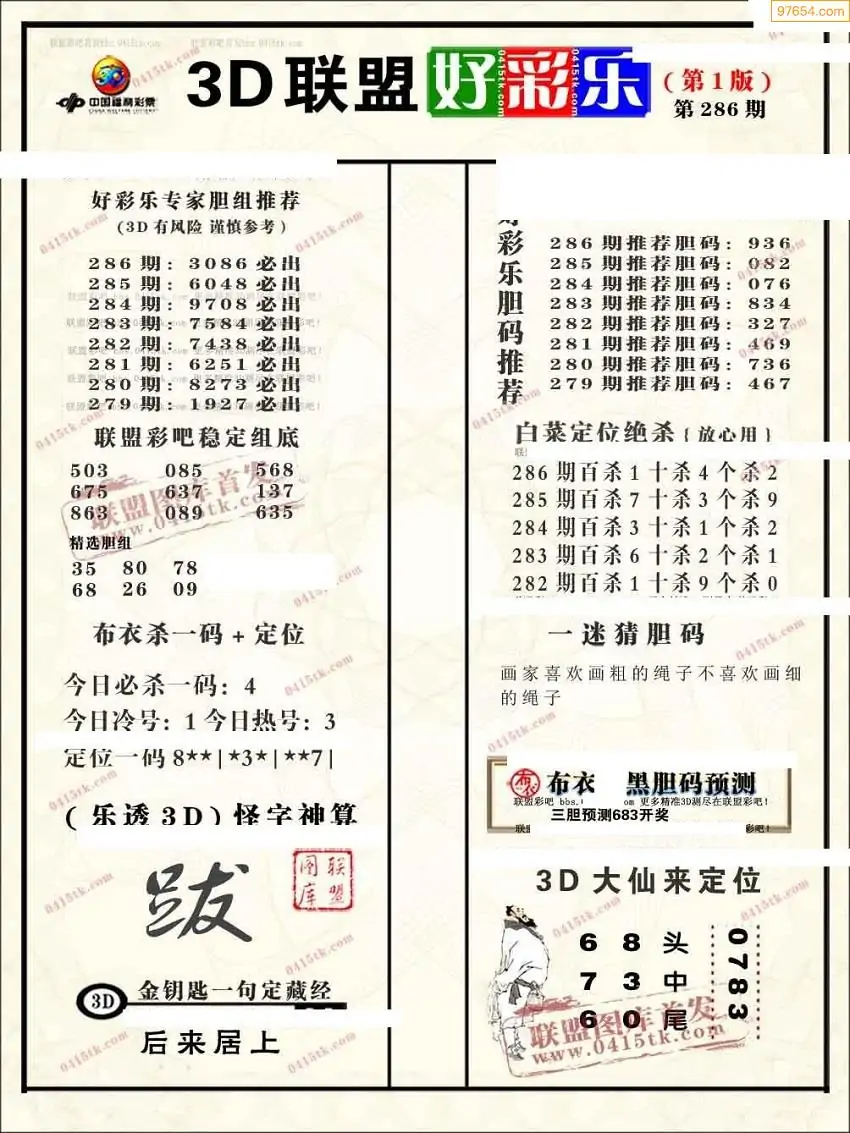 97654.com
中国福利彩票
CHINA WELFARE LOTTERY
3D联盟好彩乐
(第1版)
第286期
好彩乐专家胆组推荐
(3D有风险 谨慎参考)
286期: 3086必出
285期: 6048必出
284期: 9708必出
283期: 7584必出
282期: 7438必出
281期: 6251必出
280期: 8273必出
279期: 1927必出
联盟彩吧稳定组底
503 085 568
675 637 137
863 089 635
精选胆组
35 80 78
68 26 09
联盟图库首发
www.0415tk.com
布衣杀一码+定位
今日必杀一码: 4
今日冷号: 1 今日热号: 3
定位一码8**|*3*|**7|
(乐透3D)怪字神算
跋
联盟图库
3D 金钥匙一句定藏经
后来居上
彩乐胆码推荐
286期推荐胆码: 936
285期推荐胆码: 082
284期推荐胆码: 076
283期推荐胆码: 834
282期推荐胆码: 327
281期推荐胆码: 469
280期推荐胆码: 736
279期推荐胆码: 467
白菜定位绝杀{放心用}
286期百杀1十杀4个杀2
285期百杀7十杀3个杀9
284期百杀3十杀1个杀2
283期百杀6十杀2个杀1
282期百杀1十杀9个杀0
一迷猜胆码
画家喜欢画粗的绳子不喜欢画细
的绳子
布衣 布衣 黑胆码预测
联盟彩吧 bbs. om 更多精准3D测尽在联盟彩吧!
三胆预测683开奖
彩吧!
3D大仙来定位
6 8 头
7 3 中
6 0 尾
0783
联盟图库首发
www.0415tk.com
0415tk.com